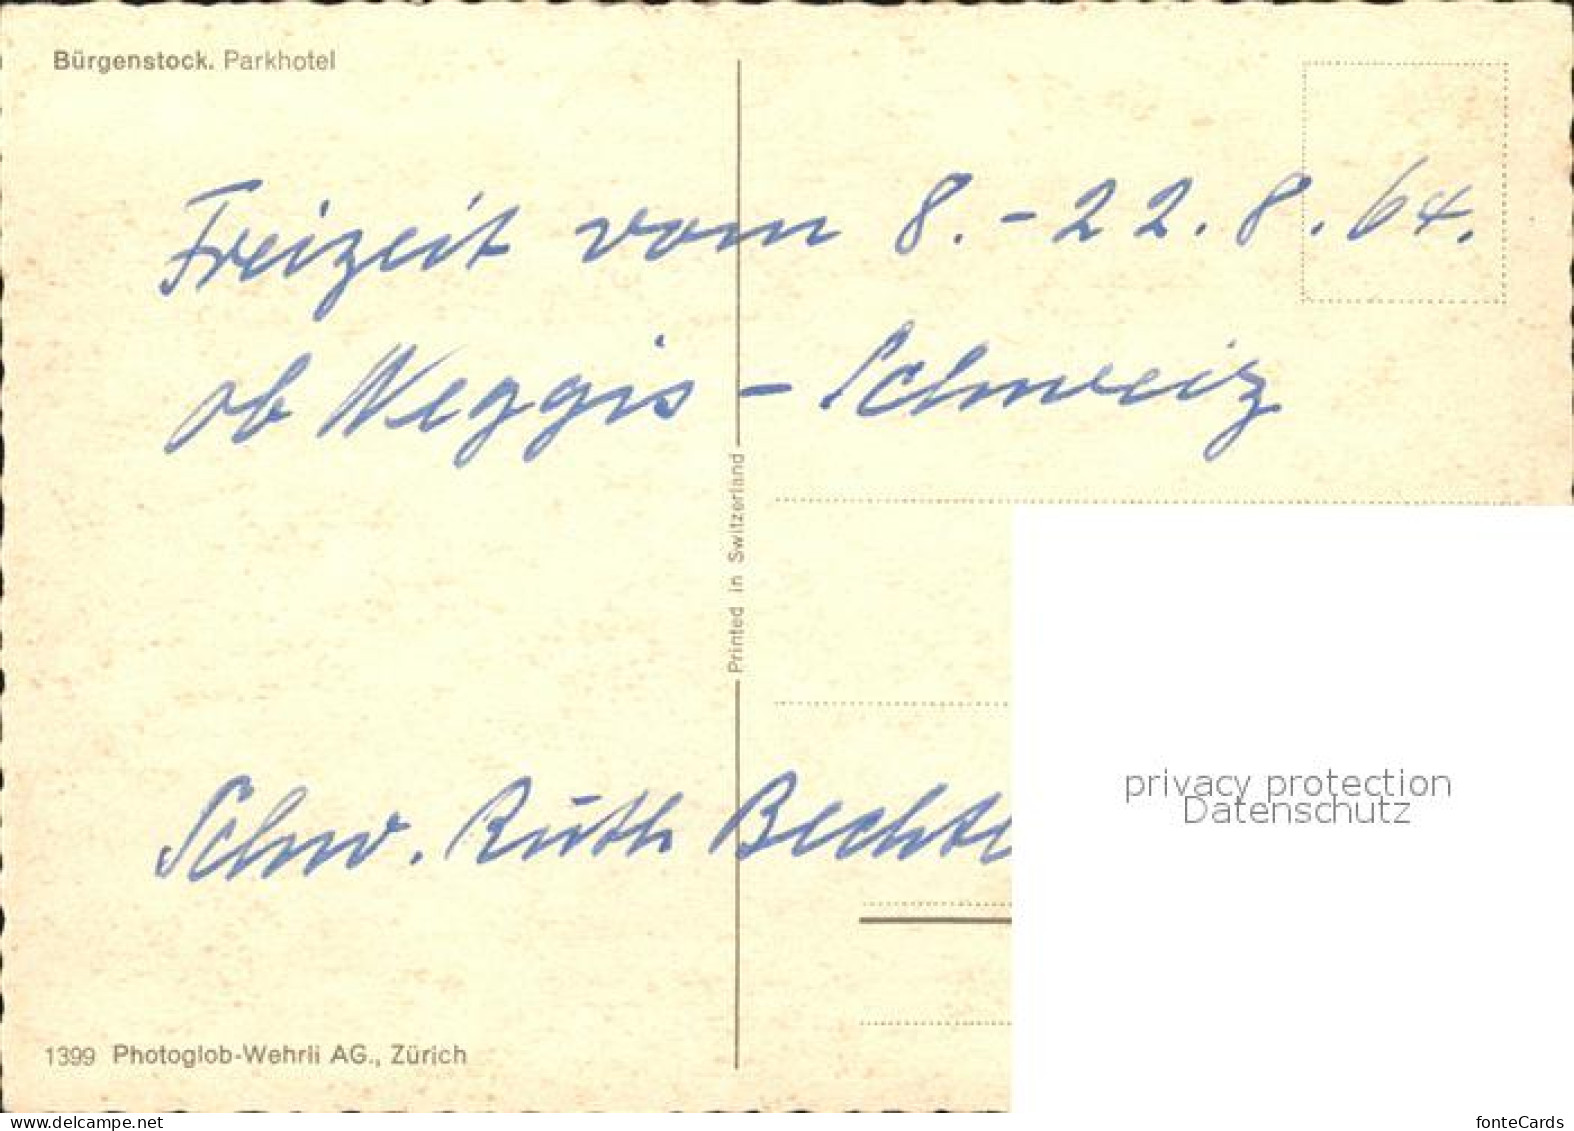 Bürgenstock. Parkhotel
Freizeit vom 8.-22.8.64.
ob Weggis - Schweiz
Printed in Switzerland
privacy protection
Datenschutz
Schw. Ruth
1399 Photoglob-Wehrli AG., Zürich
www.delcampe.net
fonteCards